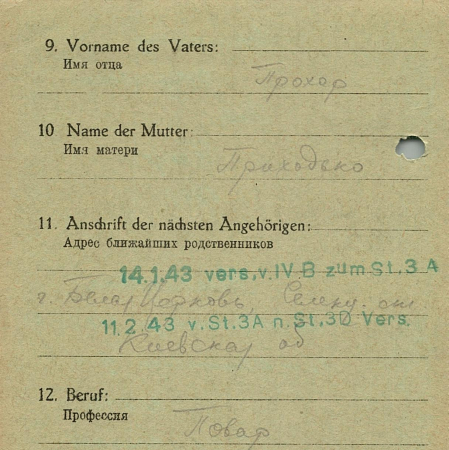 9. Vorname des Vaters:
Имя отца
Прохор
10 Name der Mutter:
Имя матери
Приходько
11. Anschrift der nächsten Angehörigen:
Адрес ближайших родственников
14.1.43 vers, v. IV B zum St. 3 A
г. Белая Церковь,
11.2.43 v. St. 3A n St. 3D Vers.
Киевская об
12. Beruf:
Профессия
Повар